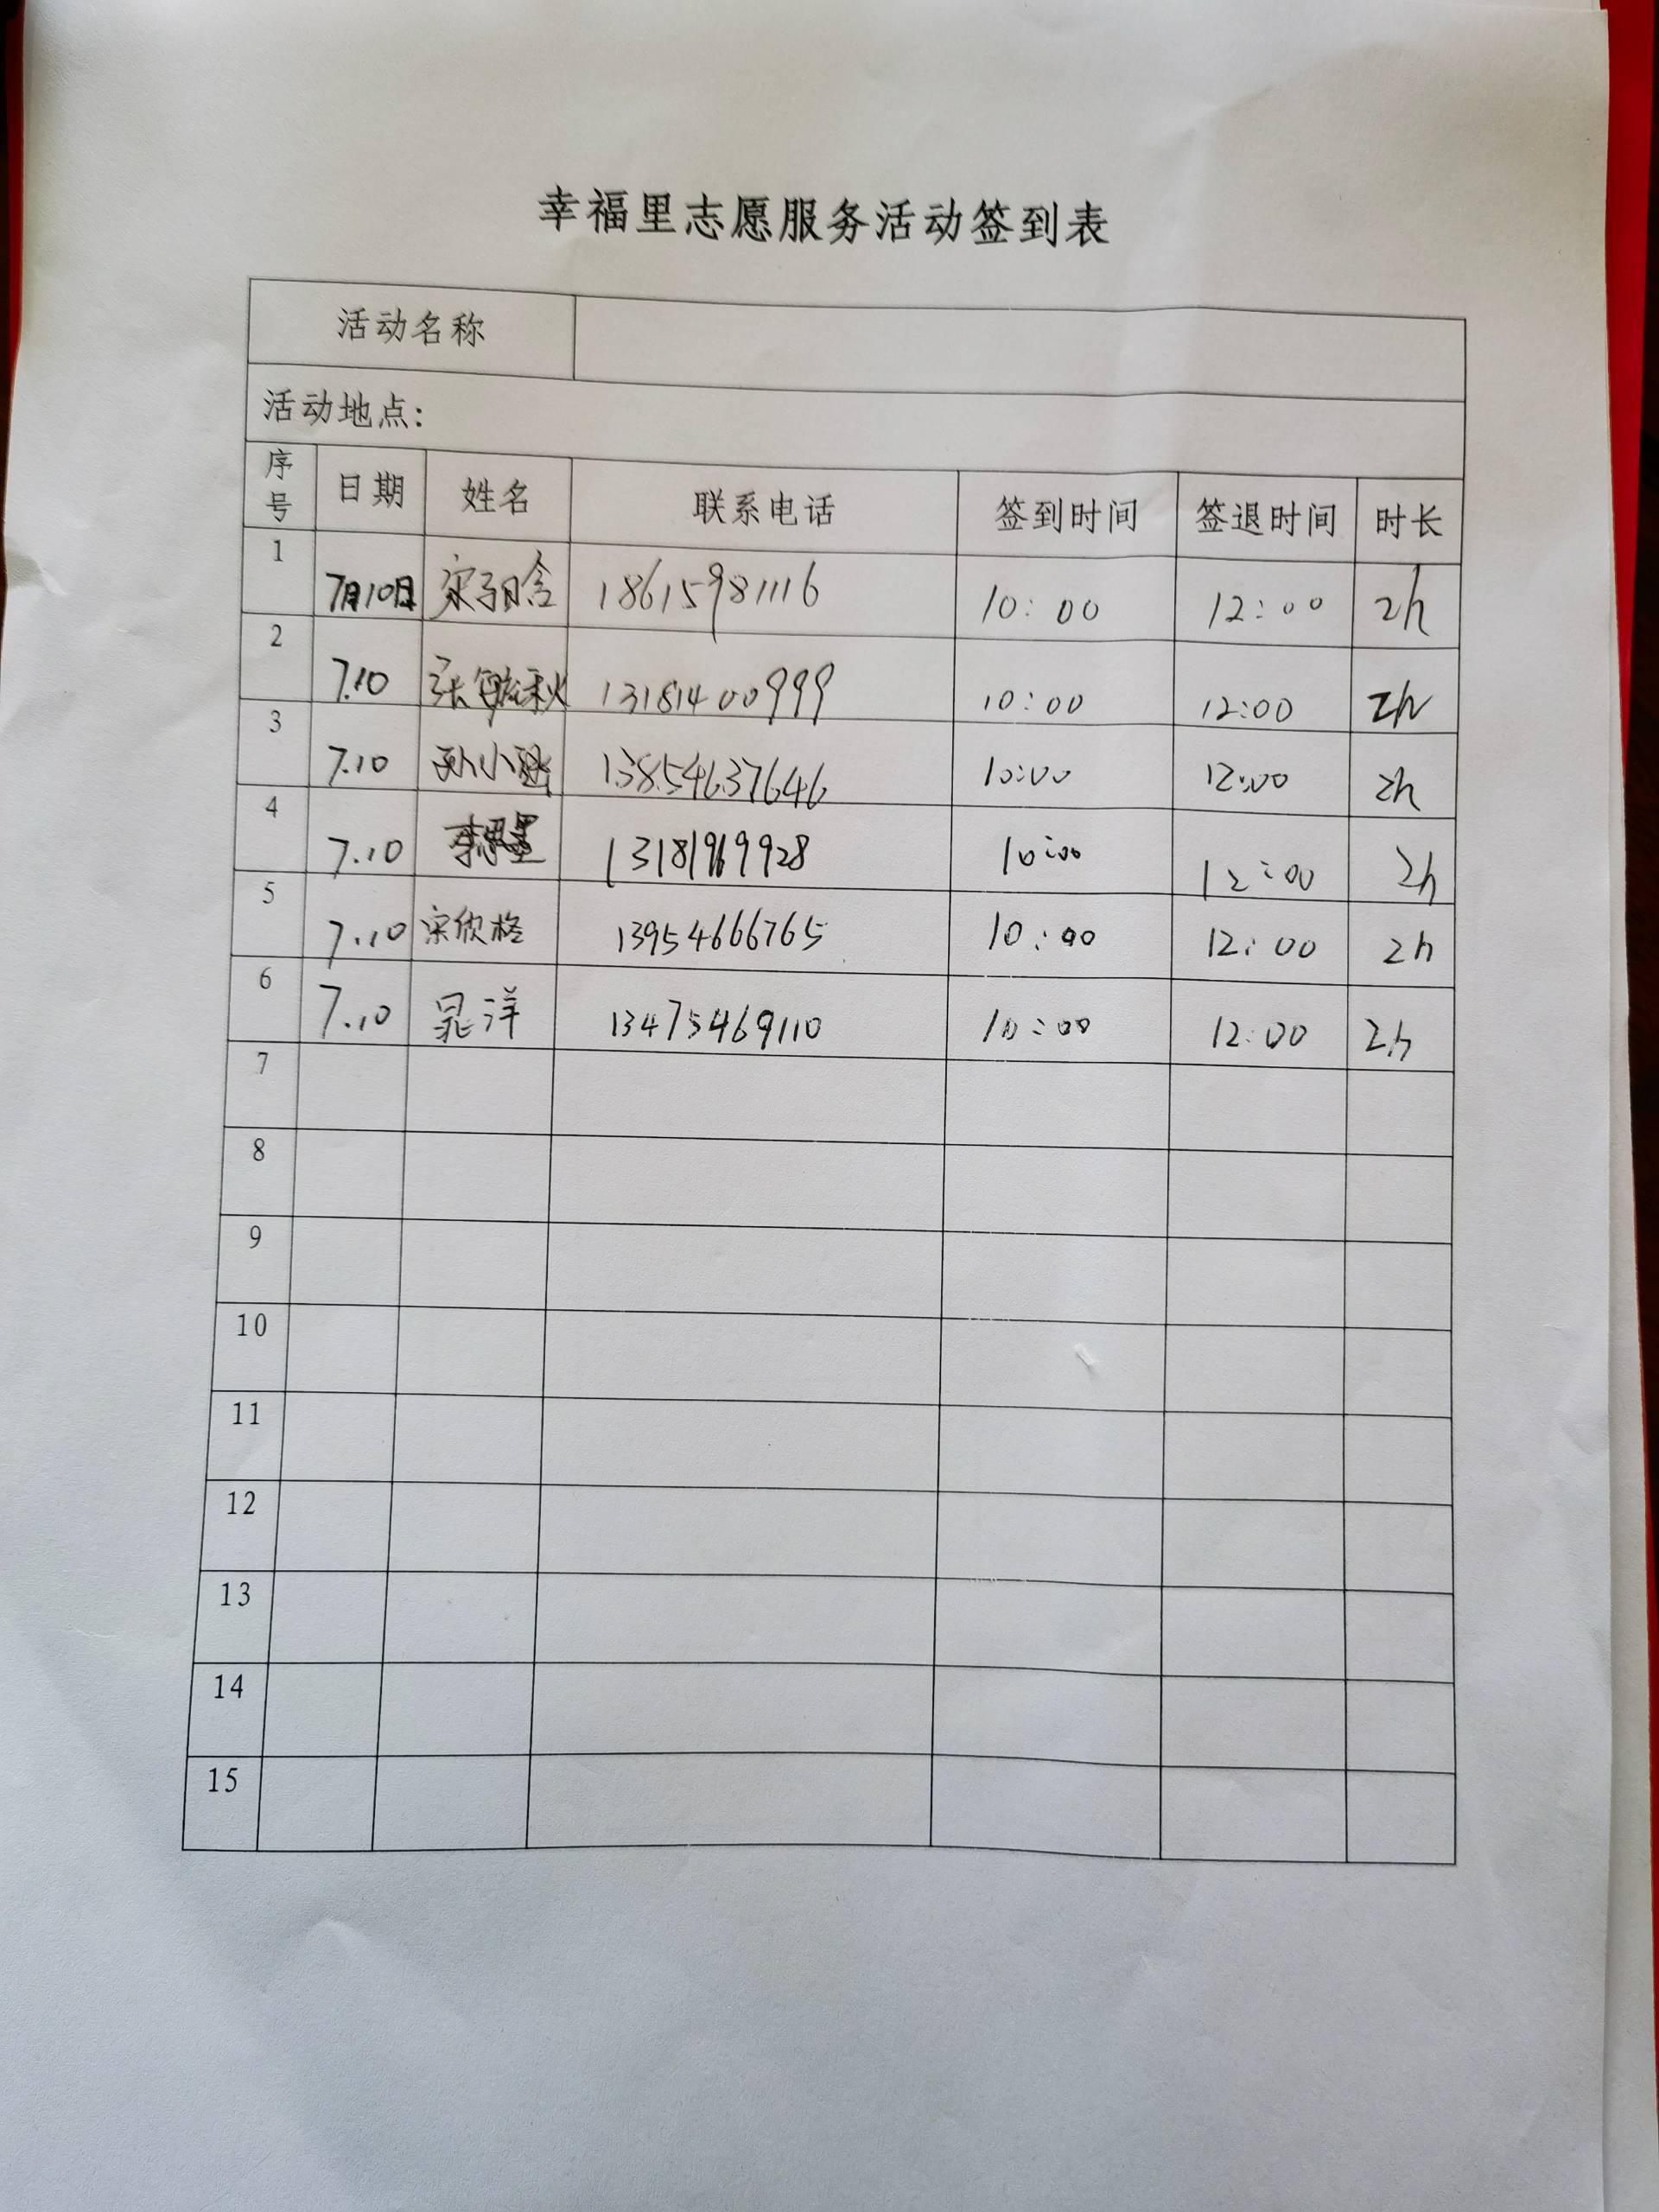 幸福里志愿服务活动签到表
活动名称
活动地点：
序号 日期 姓名 联系电话 签到时间 签退时间 时长
1 7月10日 宋子晗 18615981116 10:00 12:00 2h
2 7.10 张毓秋 13181400999 10:00 12:00 2h
3 7.10 孙小 13854637646 10:00 12:00 2h
4 7.10 10:00 12:00 2h
5 7.10 宋欣格 13954666765 10:00 12:00 2h
6 7.10 晁洋 13475469110 10:00 12:00 2h
7
8
9
10
11
12
13
14
15